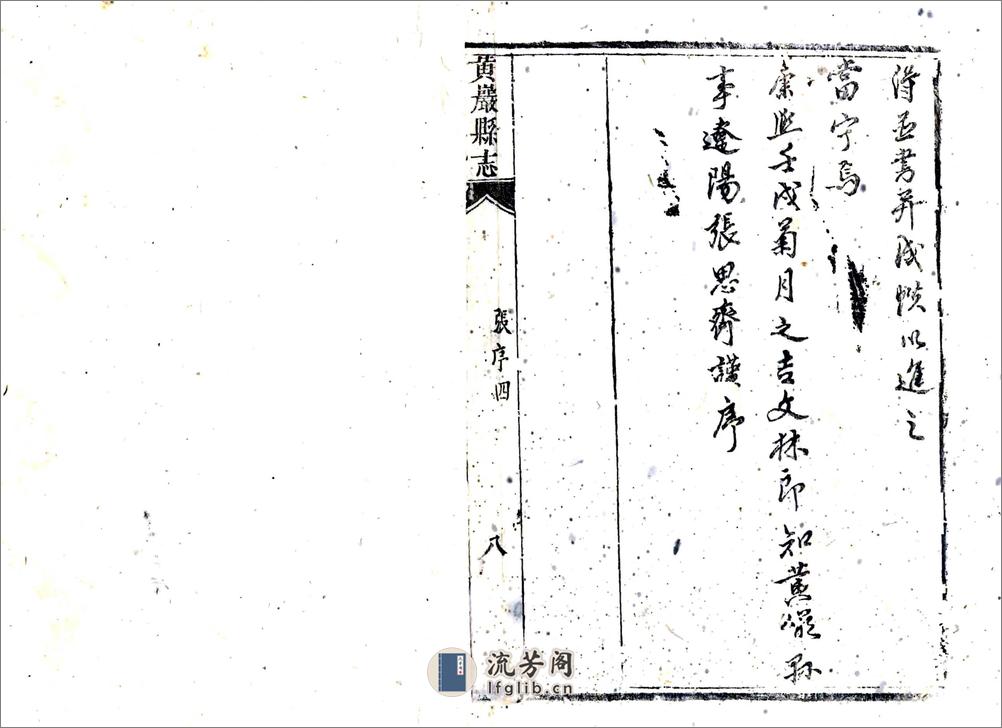 得並書并成帙以進之
當宁焉
康熙壬戌菊月之吉文林郎知黃巖縣
事遼陽張思齊謹序
黃巖縣志
張序四
八
流芳阁
lfglib.cn